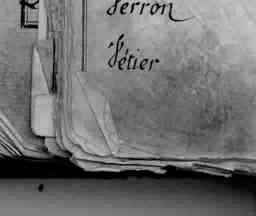 Perron
Pétier